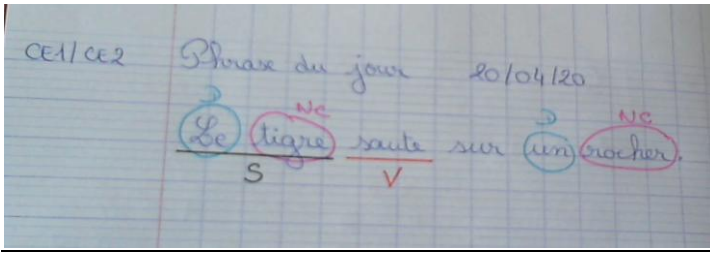 CE1/CE2 Phrase du jour 20/04/20
D NC D NC
Le tigre saute sur un rocher.
S V